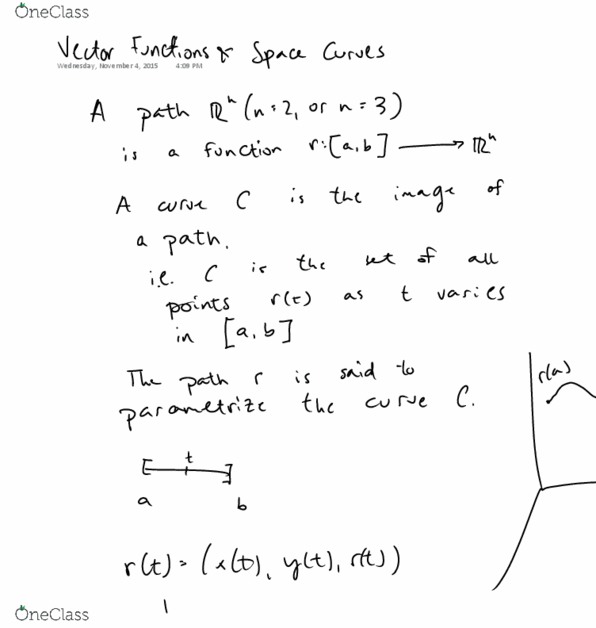 OneClass
Vector Functions & Space Curves
Wednesday, November 4, 2015 4:09 PM
A path ℝⁿ (n=2, or n=3)
is a function r:[a,b] ⟶ ℝⁿ
A curve C is the image of
a path.
i.e. C is the set of all
points r(t) as t varies
in [a,b]
r(a)
The path r is said to
parametrize the curve C.
t
a b
r(t) = (x(t), y(t), r(t))
OneClass